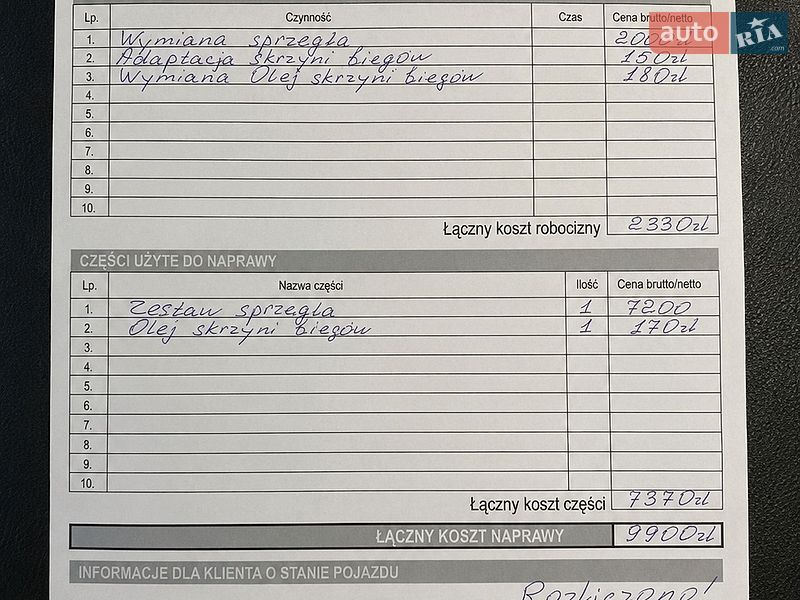 Lp. Czynność Czas Cena brutto/netto
auto RIA .com
1. Wymiana sprzęgła 2000zł
2. Adaptacja skrzyni biegów 150zł
3. Wymiana Olej skrzyni biegów 180zł
4.
5.
6.
7.
8.
9.
10.
Łączny koszt robocizny 2330zł
CZĘŚCI UŻYTE DO NAPRAWY
Lp. Nazwa części Ilość Cena brutto/netto
1. Zestaw sprzęgla 1 7200
2. Olej skrzyni biegów 1 170zł
3.
4.
5.
6.
7.
8.
9.
10.
Łączny koszt części 7370zł
ŁĄCZNY KOSZT NAPRAWY 9900zł
INFORMACJE DLA KLIENTA O STANIE POJAZDU